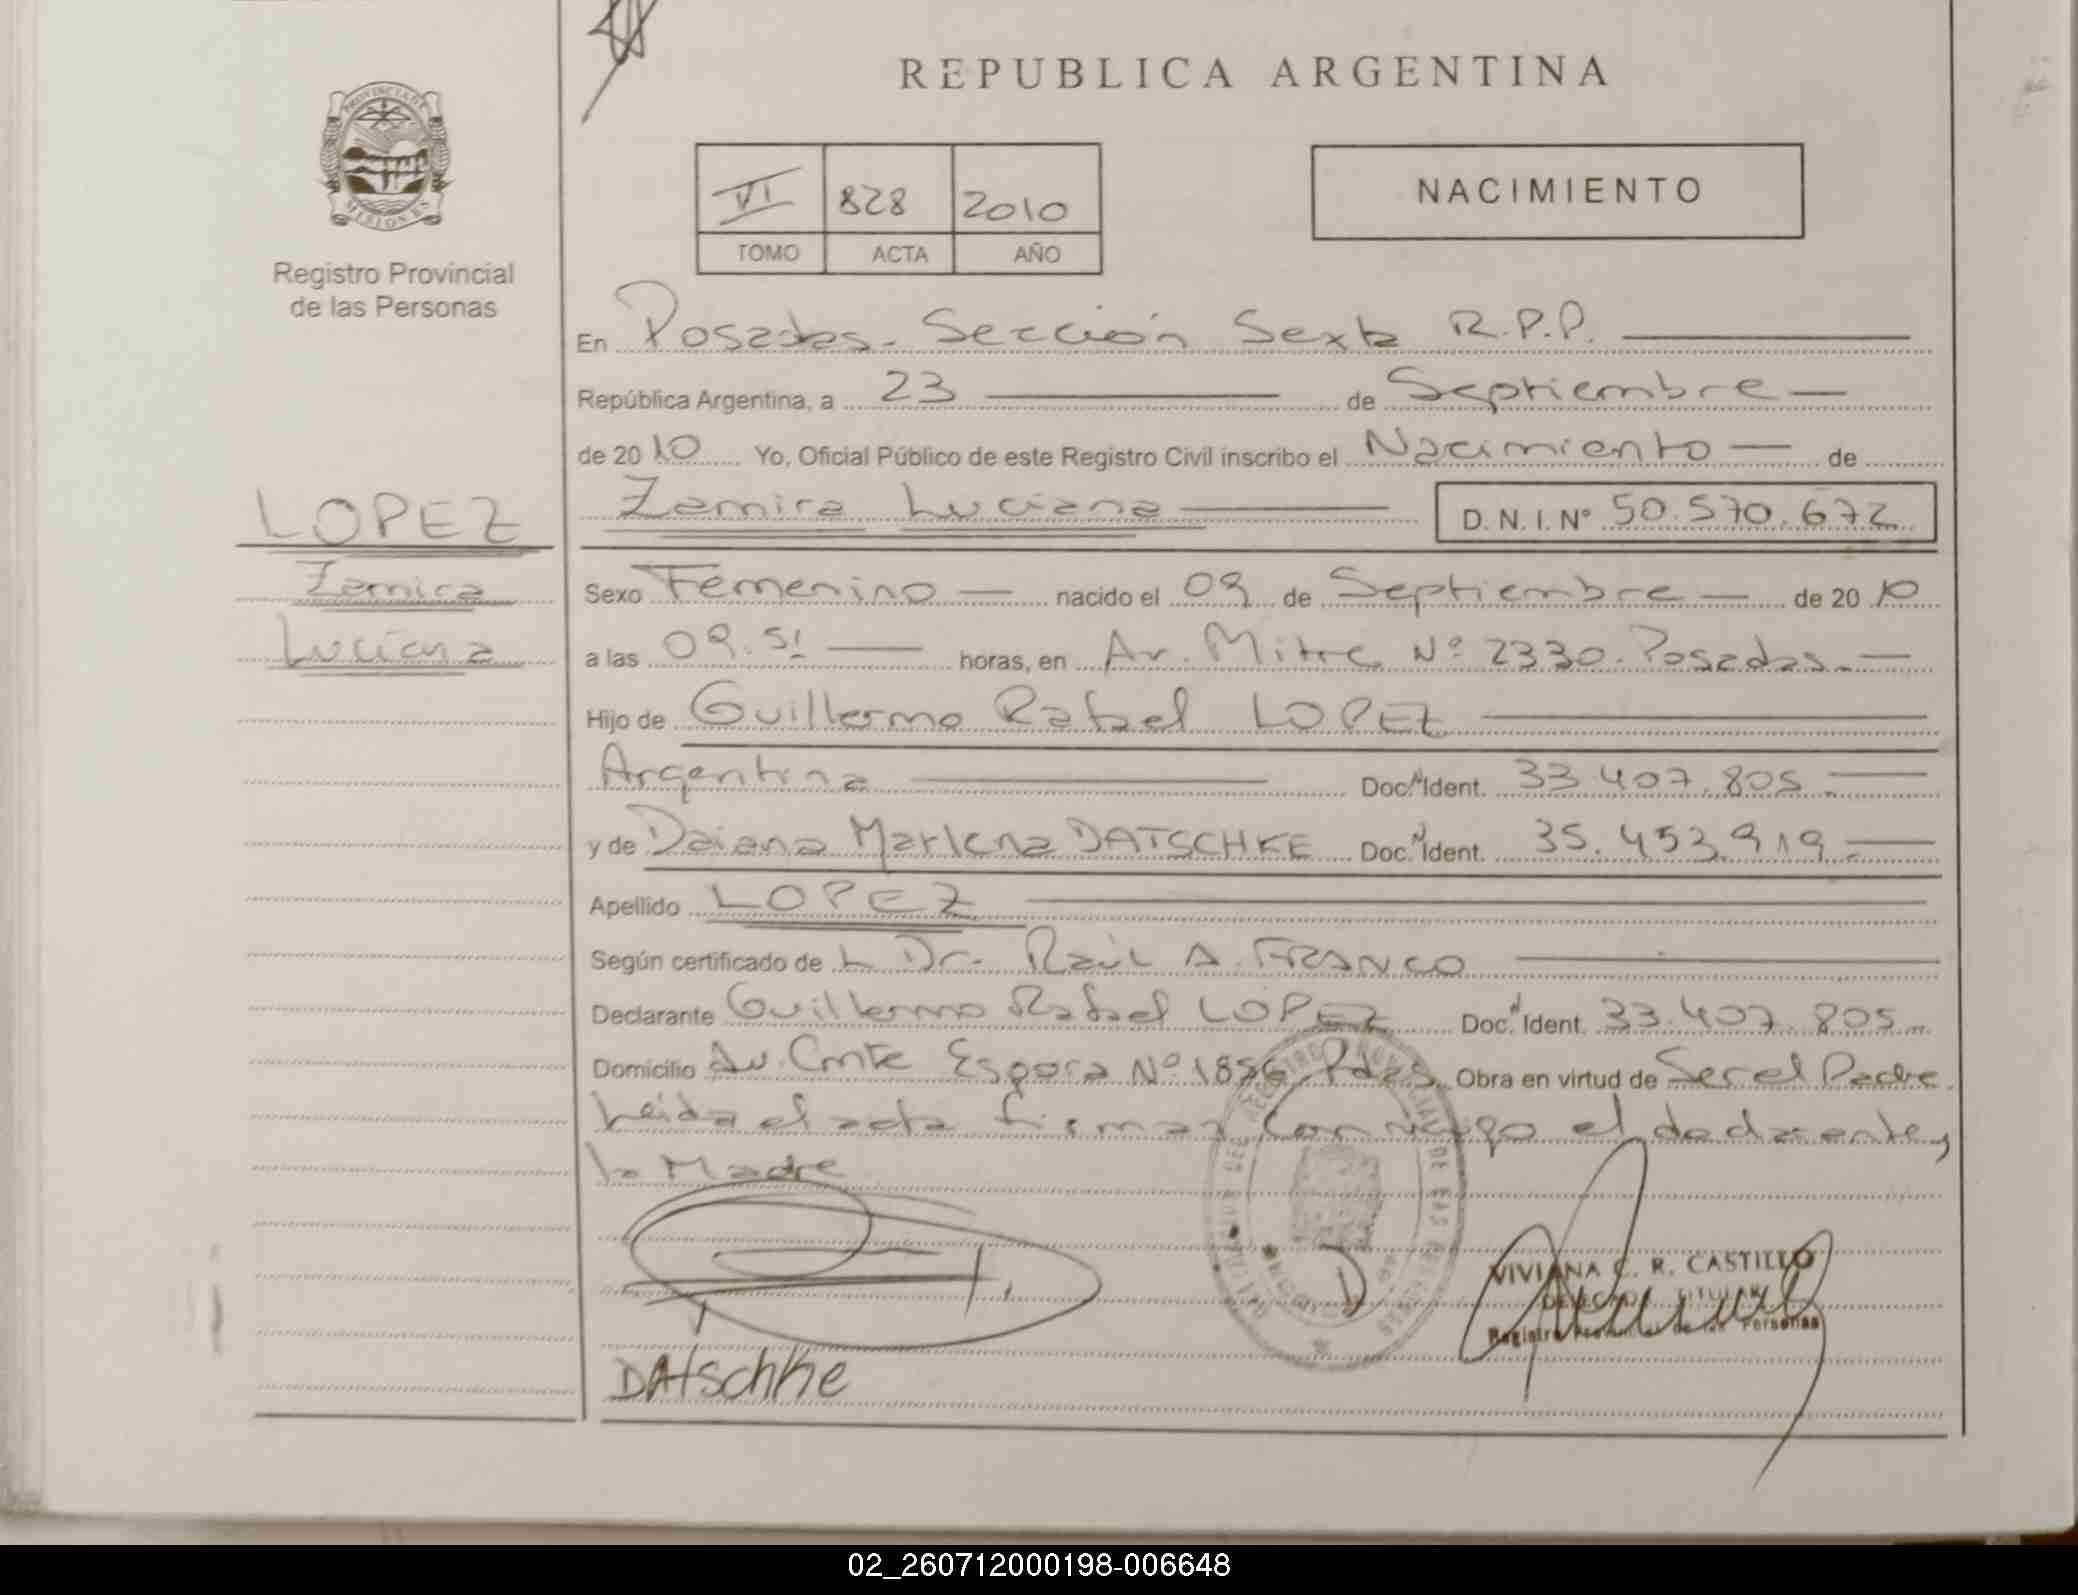 REPUBLICA ARGENTINA
PROVINCIA DE
MISIONES
Registro Provincial
de las Personas
VI 828 2010
TOMO ACTA AÑO
NACIMIENTO
En Posadas - Sección Sexta R.P.P.
República Argentina, a 23 de Septiembre
de 2010 Yo, Oficial Público de este Registro Civil inscribo el Nacimiento de
Zamira Luciana D.N.I. Nº 50.570.672
LOPEZ
Zamira
Luciana
Sexo Femenino nacido el 09 de Septiembre de 2010
a las 09.51 horas, en Av. Mitre Nº 2330. Posadas.
Hijo de Guillermo Rafael LOPEZ
Argentina Doc. N Ident. 33.407.805.
y de Daiana Marlena DATSCHKE Doc. N Ident. 35.453.919.
Apellido LOPEZ
Según certificado de L Dr. Raúl A. FRANCO
Declarante Guillermo Rafael LOPEZ Doc. N Ident. 33.407.805.
Domicilio Av. Cmte Espora Nº 1856 Pdas. Obra en virtud de Ser el Padre
Leida el acta firman conmigo el declarante y
la Madre
VIVIANA C. R. CASTILLO
Registro Provincial de las Personas
DAtschke
02_260712000198-006648